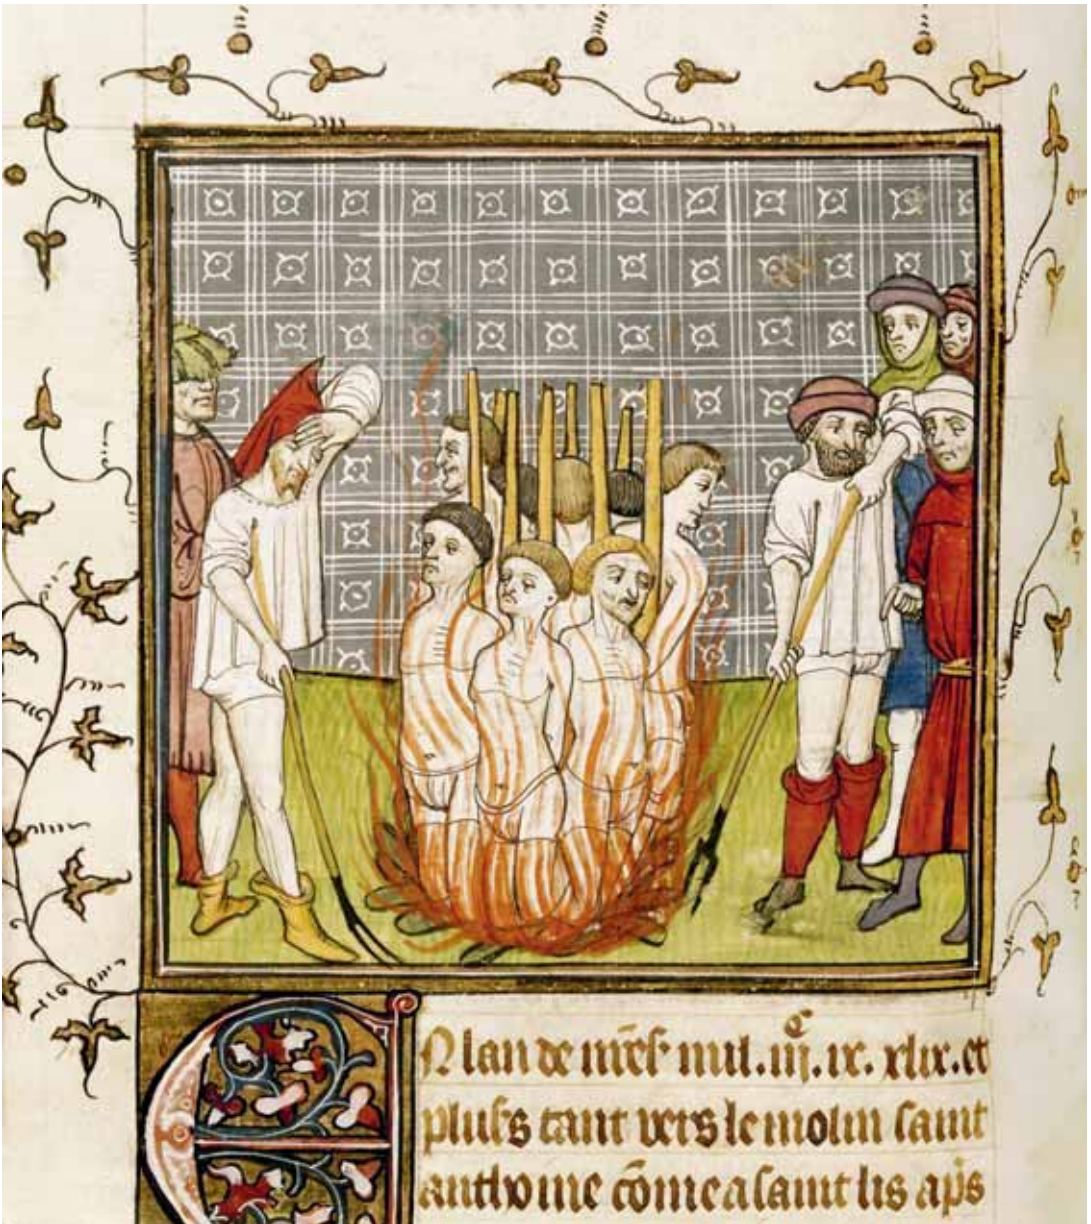 EN lan de nr̃es mil .iijᶜ. ix. xlix. et
pluss tant vers le molin saint
anthoine cõme a saint lis ap̃s